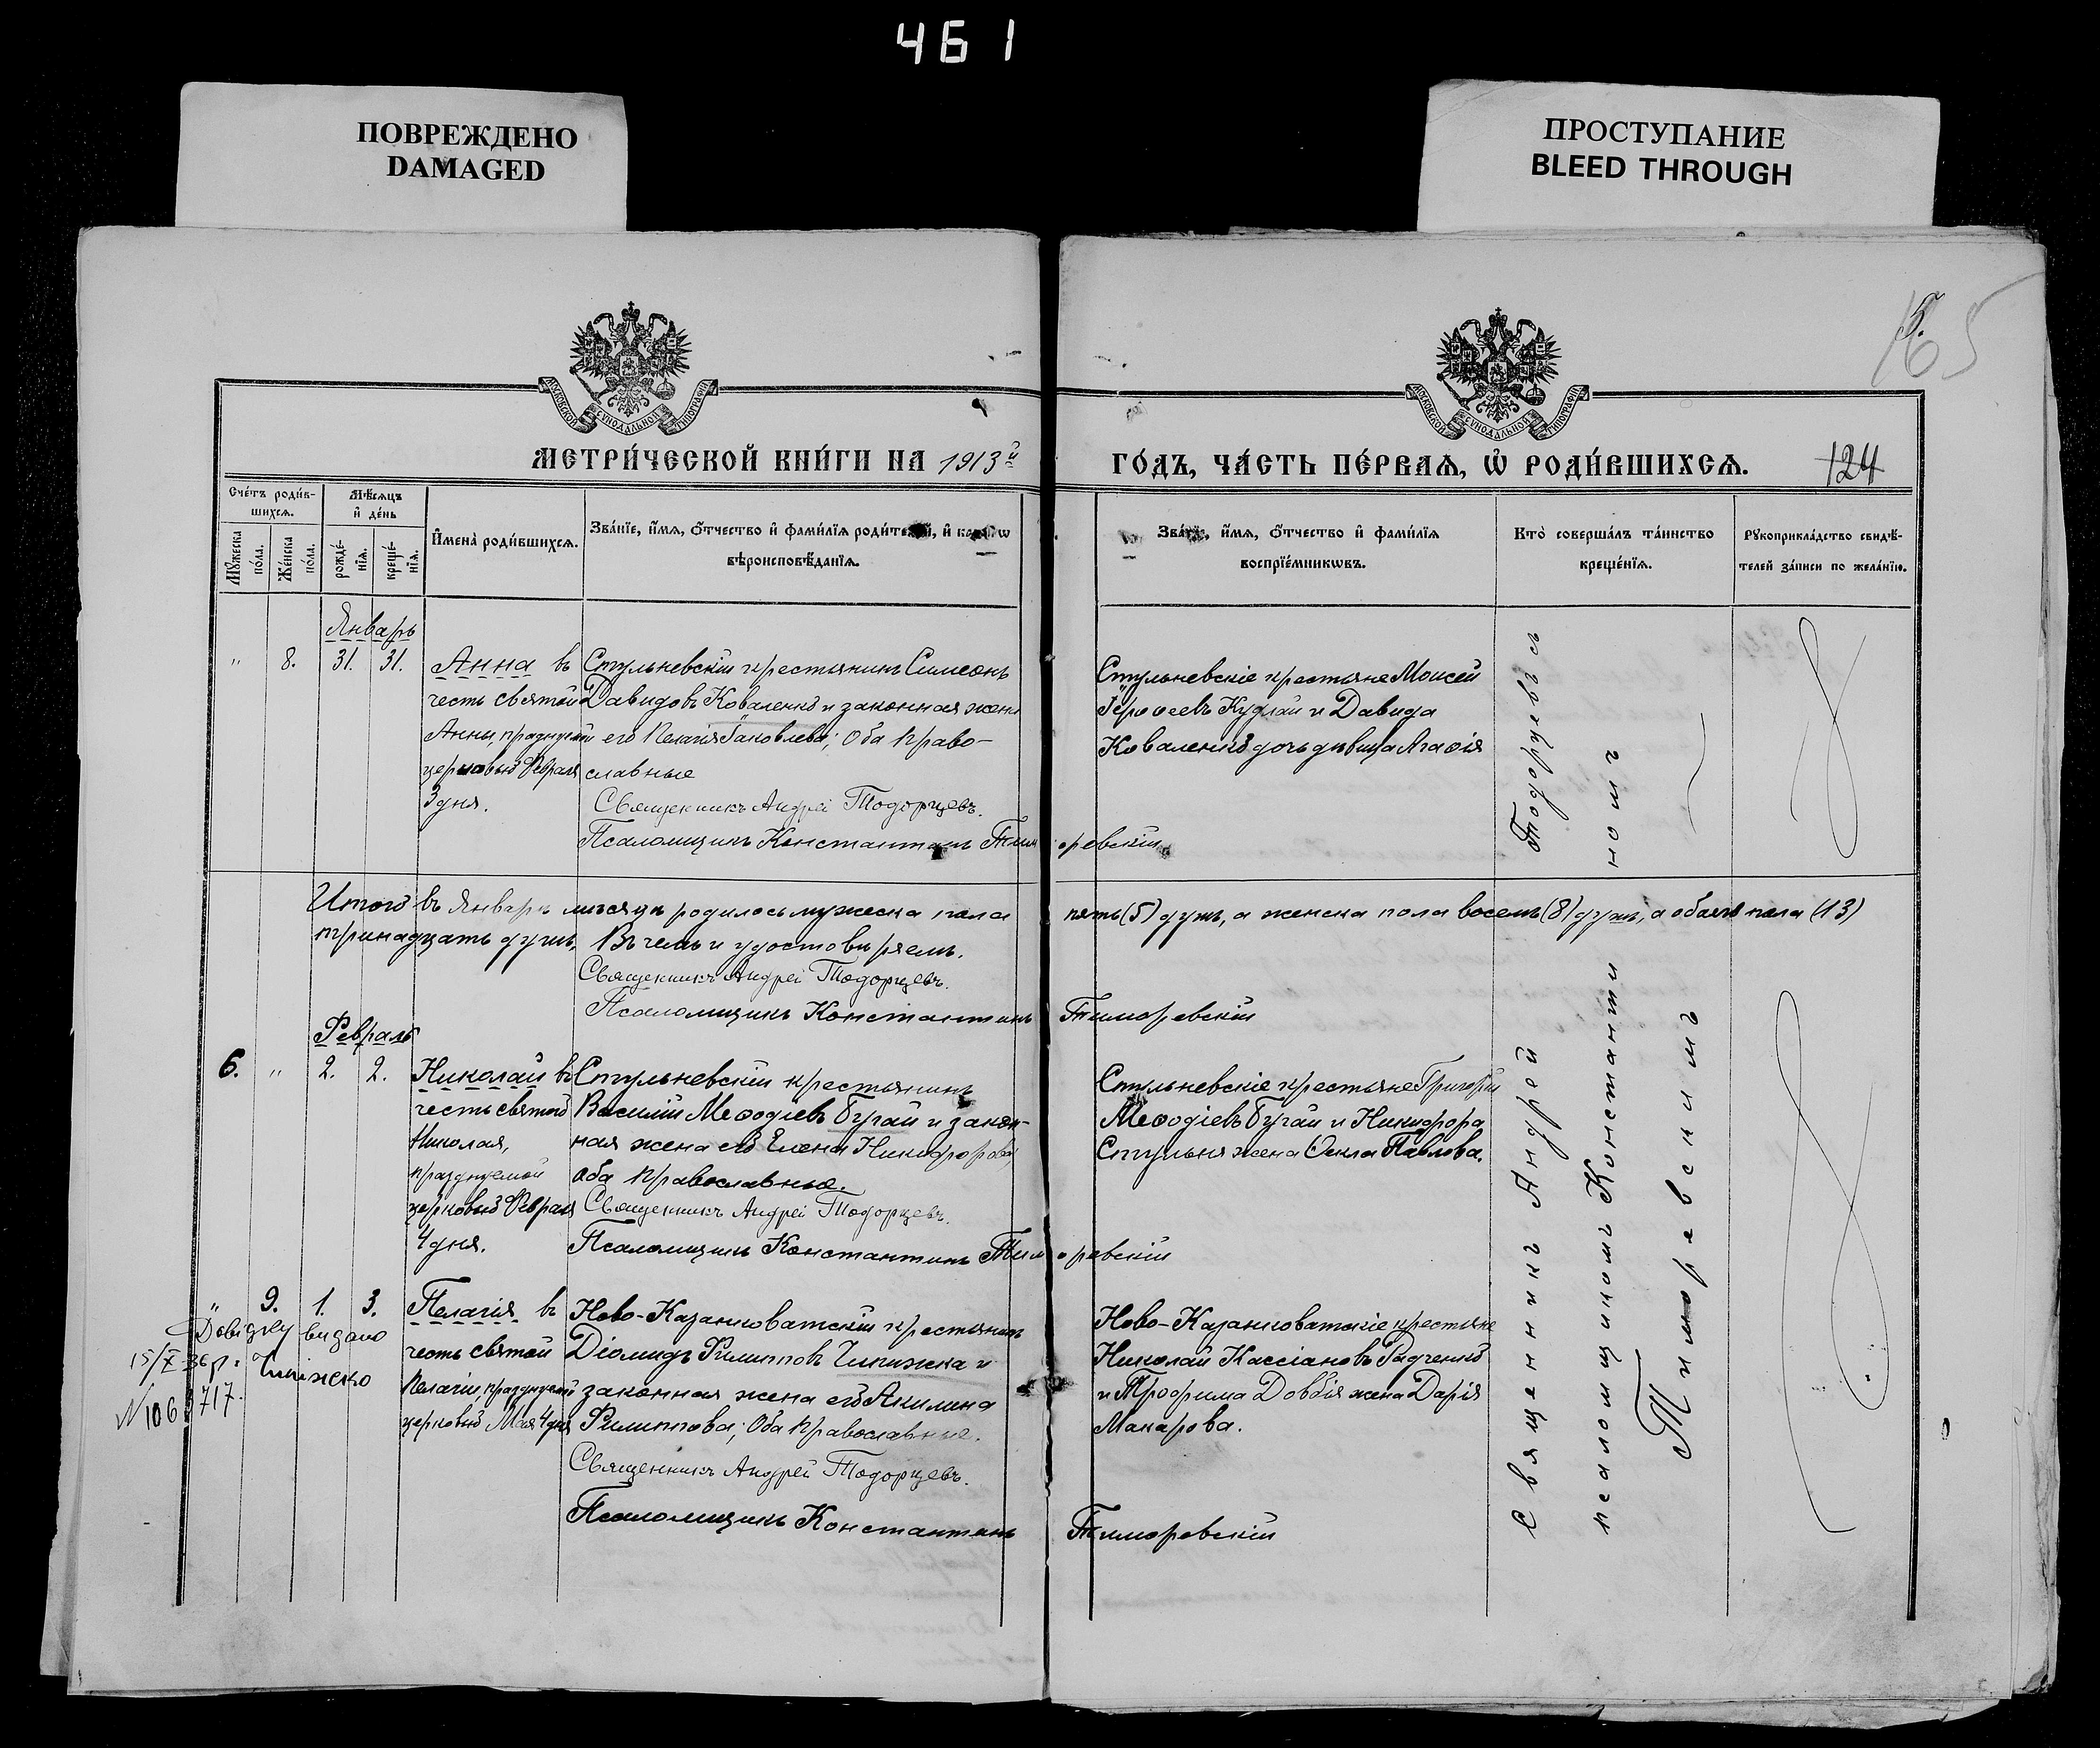 461
ПОВРЕЖДЕНО
DAMAGED
ПРОСТУПАНИЕ
BLEED THROUGH
5.
165
МОСКОВСКОЙ СУНОДАЛЬНОЙ ТИПОГРАФІИ
МОСКОВСКОЙ СУНОДАЛЬНОЙ ТИПОГРАФІИ
МЕТРИ́ЧЕСКОЙ КНИ́ГИ НА 1913й
ГО́ДЪ, ЧА́СТЬ ПЕ́РВАѦ, Ѡ҆ РОДИ́ВШИХСѦ.
124
Сче́тъ роди́в-
шихсѧ.
Мꙋ́жеска по́ла.
Же́нска по́ла.
Мѣ́сѧцъ
и҆ де́нь
рожде́-
нїѧ.
креще́-
нїѧ.
И҆мена̀ роди́вшихсѧ.
Зва́нїе, и҆́мѧ, ѻ҆́тчество и҆ фами́лїѧ роди́телей, и҆ како́гѡ
вѣроисповѣ́данїѧ.
Зва́нїе, и҆́мѧ, ѻ҆́тчество и҆ фами́лїѧ
воспрїе́мникѡвъ.
Кто̀ соверша́лъ та́инство
креще́нїѧ.
Рꙋкоприкла́дство свидѣ́-
телей за́писи по жела́нїю.
Январь
" 8. 31. 31.
Анна въ
честь святой
Анны, празднуемой
церковью Февраля
3 дня.
Стульневскій крестьянинъ Симеонъ
Давидовъ Коваленко и законная жена
его Пелагія Іаковлева; Оба право-
славные
Священникъ Андрей Тодорцевъ.
Псаломщикъ Константинъ Тиморевскій
Стульневскіе крестьяне Моисей
Іероѳеевъ Кудлай и Давида
Коваленко дочь дѣвица Агаѳія
Итого въ Январѣ мѣсяцѣ родилось мужеска пола пять (5) душъ, а женска пола восемь (8) душъ, а обоего пола (13)
тринадцать душъ. Въ чемъ и удостовѣряемъ.
Священникъ Андрей Тодорцевъ.
Псаломщикъ Константинъ Тиморевскій
Февраль
6. " 2. 2.
Николай въ
честь святого
Николая,
празднуемой
церковью Февраля
4 дня.
Стульневскій крестьянинъ
Василій Меѳодіевъ Бугай и закон-
ная жена его Елена Никифорова,
оба православные.
Священникъ Андрей Тодорцевъ.
Псаломщикъ Константинъ Тиморевскій
Стульневскіе крестьяне Григорій
Меѳодіевъ Бугай и Никифора
Стульня жена Ѳекла Павлова.
" 9. 1. 3.
Довідку видано
15/X-36 р.
Чипіжско
N 106 3717.
Пелагія въ
честь святой
Пелагіи, празднуемой
церковью Мая 4 дня
Ново-Казанковатскій крестьянинъ
Діомидъ Филипповъ Чипижка и
законная жена его Акилина
Филиппова; Оба православные.
Священникъ Андрей Тодорцевъ.
Псаломщикъ Константинъ Тиморевскій
Ново-Казанковатскіе крестьяне
Николай Кассіановъ Радченко
и Трофима Довбія жена Дарія
Макарова.
Священникъ Андрей Тодорцевъ съ
псаломщикомъ Константиномъ
Тиморевскимъ